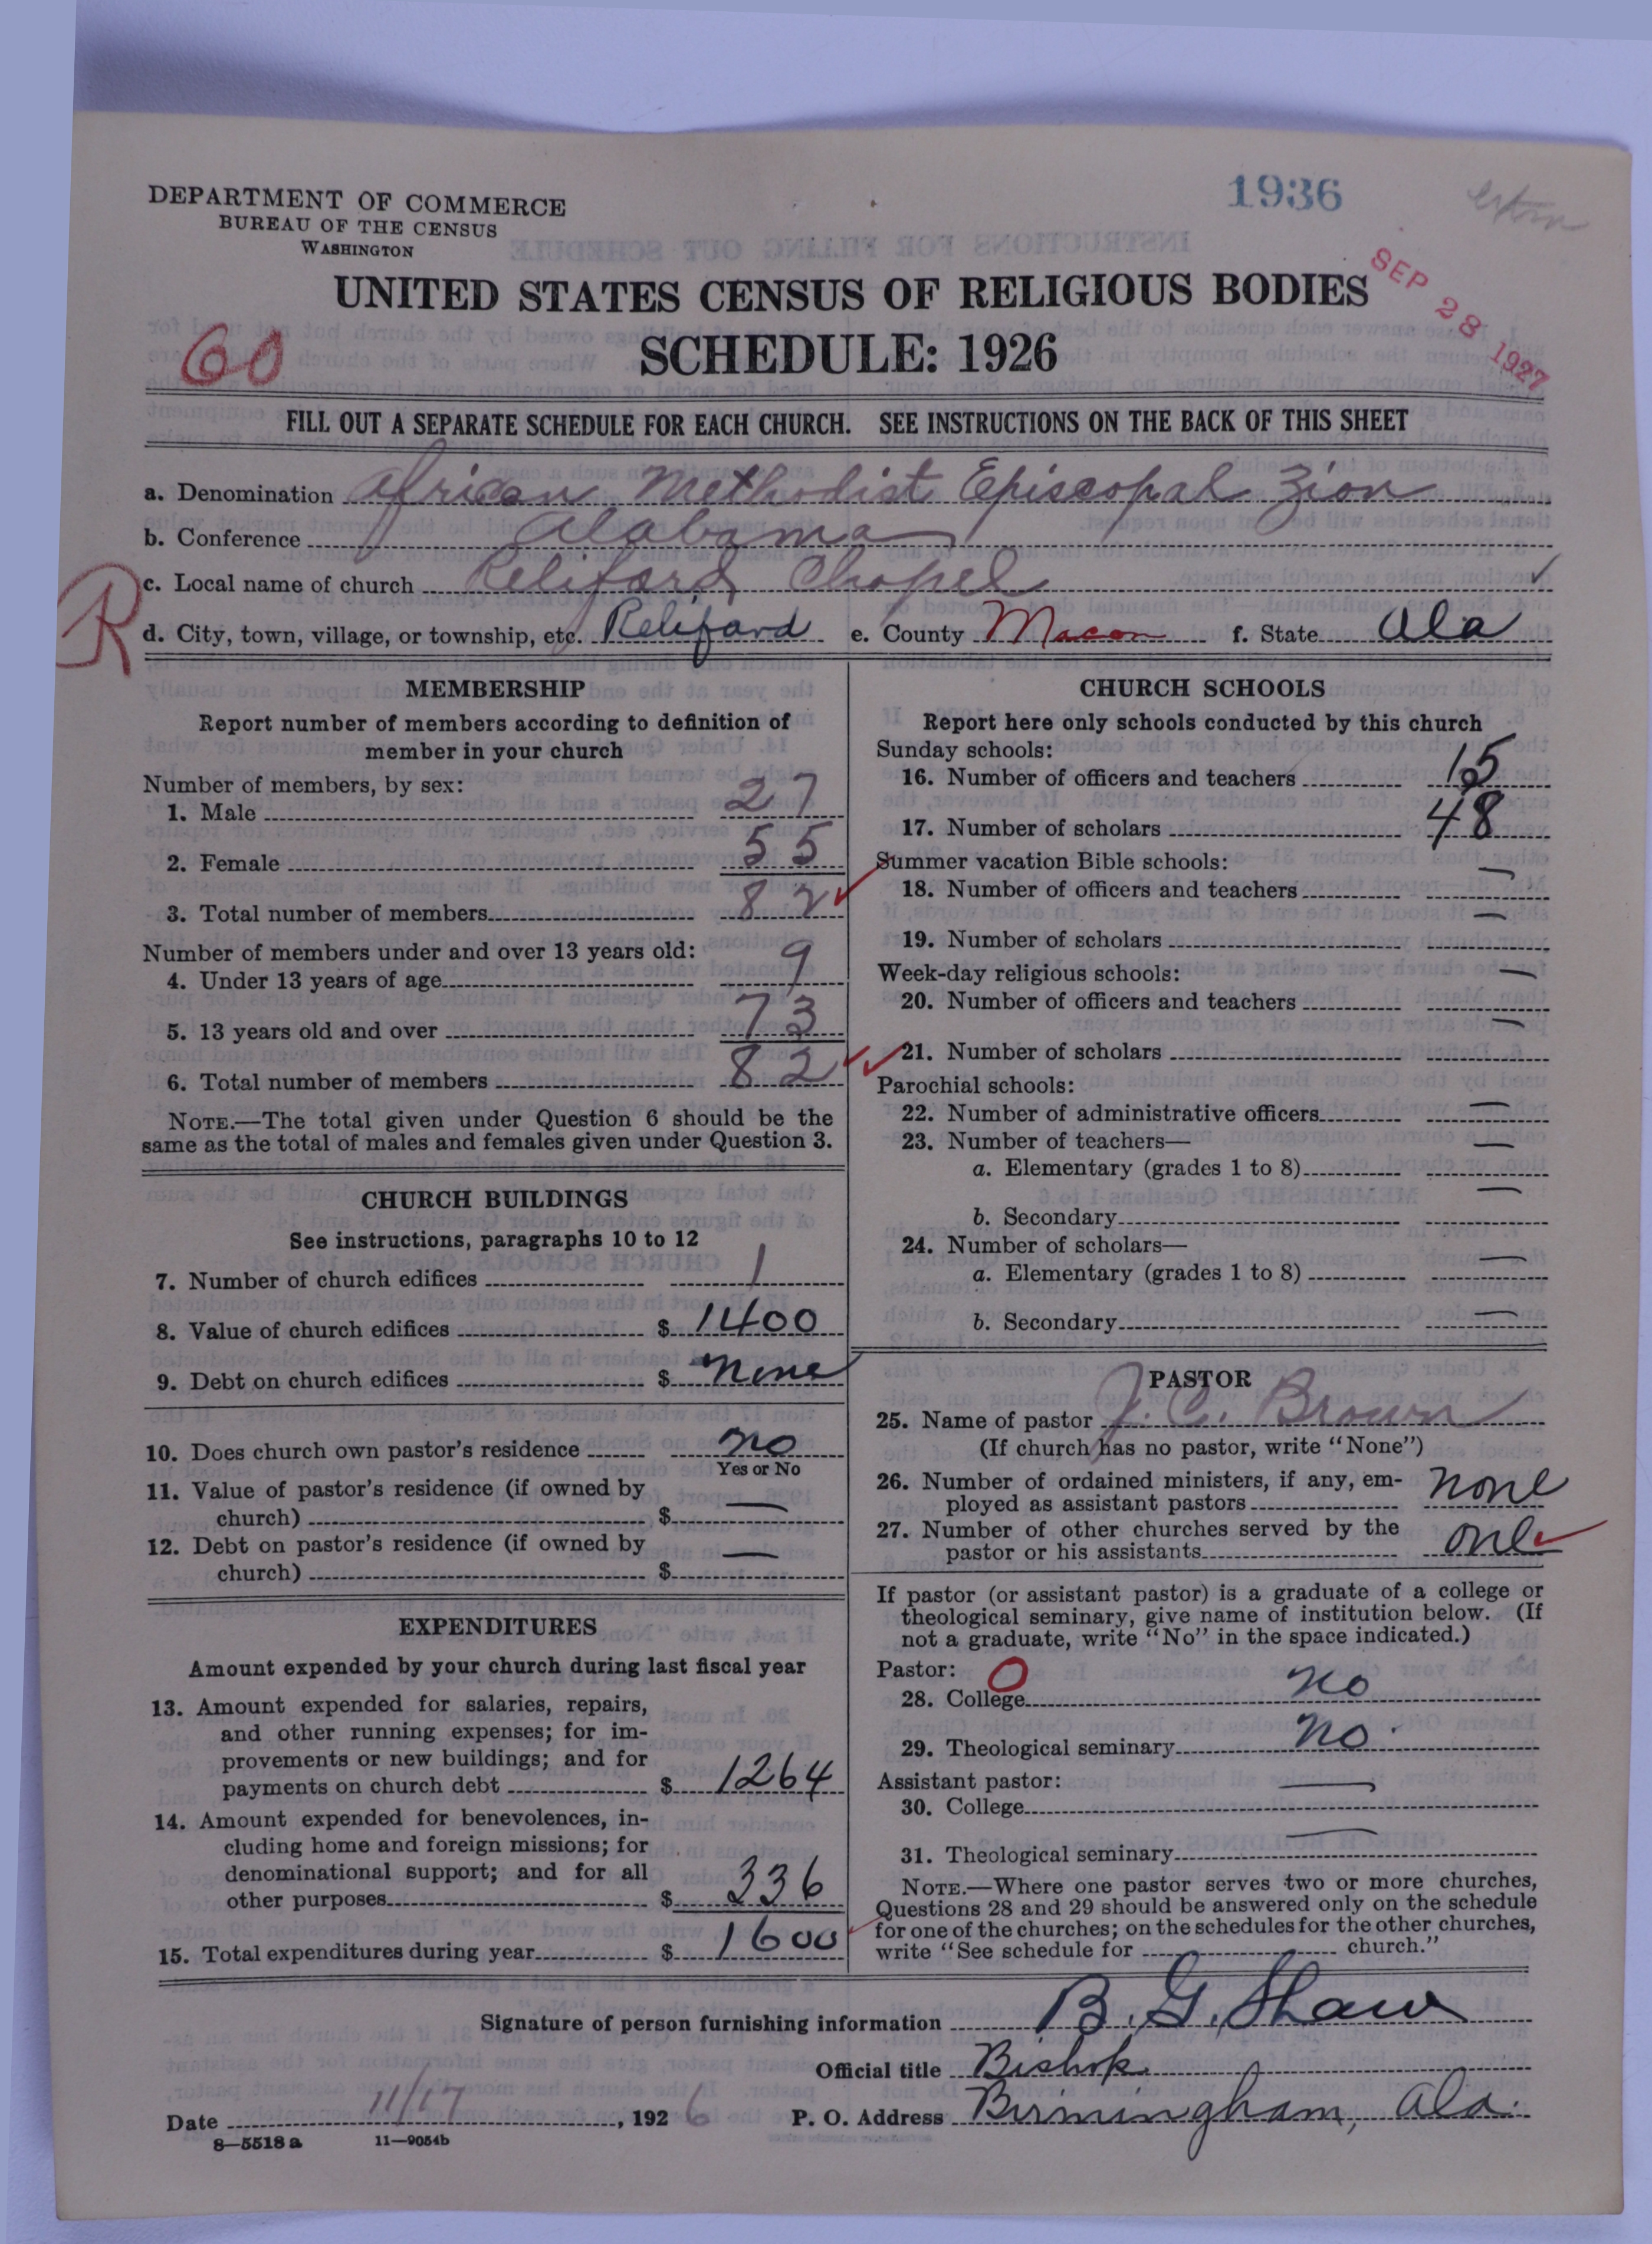 1936
DEPARTMENT OF COMMERCE
BUREAU OF THE CENSUS
WASHINGTON
SEP 28 1927
UNITED STATES CENSUS OF RELIGIOUS BODIES
60
SCHEDULE: 1926
FILL OUT A SEPARATE SCHEDULE FOR EACH CHURCH. SEE INSTRUCTIONS ON THE BACK OF THIS SHEET
a. Denomination African Methodist Episcopal Zion
b. Conference Alabama
c. Local name of church Reliford Chapel
R
d. City, town, village, or township, etc. Reliford e. County Macon f. State Ala
MEMBERSHIP
Report number of members according to definition of
member in your church
Number of members, by sex:
1. Male 27
2. Female 55
3. Total number of members 82
Number of members under and over 13 years old:
4. Under 13 years of age 9
5. 13 years old and over 73
6. Total number of members 82
NOTE.—The total given under Question 6 should be the
same as the total of males and females given under Question 3.
CHURCH BUILDINGS
See instructions, paragraphs 10 to 12
7. Number of church edifices 1
8. Value of church edifices $ 1400
9. Debt on church edifices $ None
10. Does church own pastor's residence no
Yes or No
11. Value of pastor's residence (if owned by
church) $ —
12. Debt on pastor's residence (if owned by
church) $ —
EXPENDITURES
Amount expended by your church during last fiscal year
13. Amount expended for salaries, repairs,
and other running expenses; for im-
provements or new buildings; and for
payments on church debt $ 1264
14. Amount expended for benevolences, in-
cluding home and foreign missions; for
denominational support; and for all
other purposes $ 336
15. Total expenditures during year $ 1600
CHURCH SCHOOLS
Report here only schools conducted by this church
Sunday schools:
16. Number of officers and teachers 15
17. Number of scholars 48
Summer vacation Bible schools:
18. Number of officers and teachers —
19. Number of scholars —
Week-day religious schools:
20. Number of officers and teachers —
21. Number of scholars —
Parochial schools:
22. Number of administrative officers —
23. Number of teachers—
a. Elementary (grades 1 to 8) —
b. Secondary —
24. Number of scholars—
a. Elementary (grades 1 to 8) —
b. Secondary —
PASTOR
25. Name of pastor J. C. Brown
(If church has no pastor, write "None")
26. Number of ordained ministers, if any, em-
ployed as assistant pastors none
27. Number of other churches served by the
pastor or his assistants one
If pastor (or assistant pastor) is a graduate of a college or
theological seminary, give name of institution below. (If
not a graduate, write "No" in the space indicated.)
Pastor: O
28. College no
29. Theological seminary no.
Assistant pastor:
30. College —
31. Theological seminary —
NOTE.—Where one pastor serves two or more churches,
Questions 28 and 29 should be answered only on the schedule
for one of the churches; on the schedules for the other churches,
write "See schedule for church."
Signature of person furnishing information B. G. Shaw
Official title Bishop
Date 11/17, 1926 P. O. Address Birmingham, Ala.
8—5518 a 11—9054b